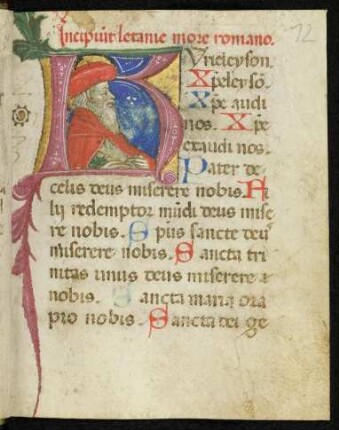 Incipiunt letanie more romano.
72
Kyrieleyson.
Xpeleysō.
Xpe audi
nos. Xpe
exaudi nos.
Pater de
celis deus miserere nobis. Fi
lij redemptor mūdi deus mise
re nobis. Spūs sancte deus
miserere nobis. Sancta tri
nitas unus deus miserere
nobis. Sancta maria ora
pro nobis. Sancta dei ge